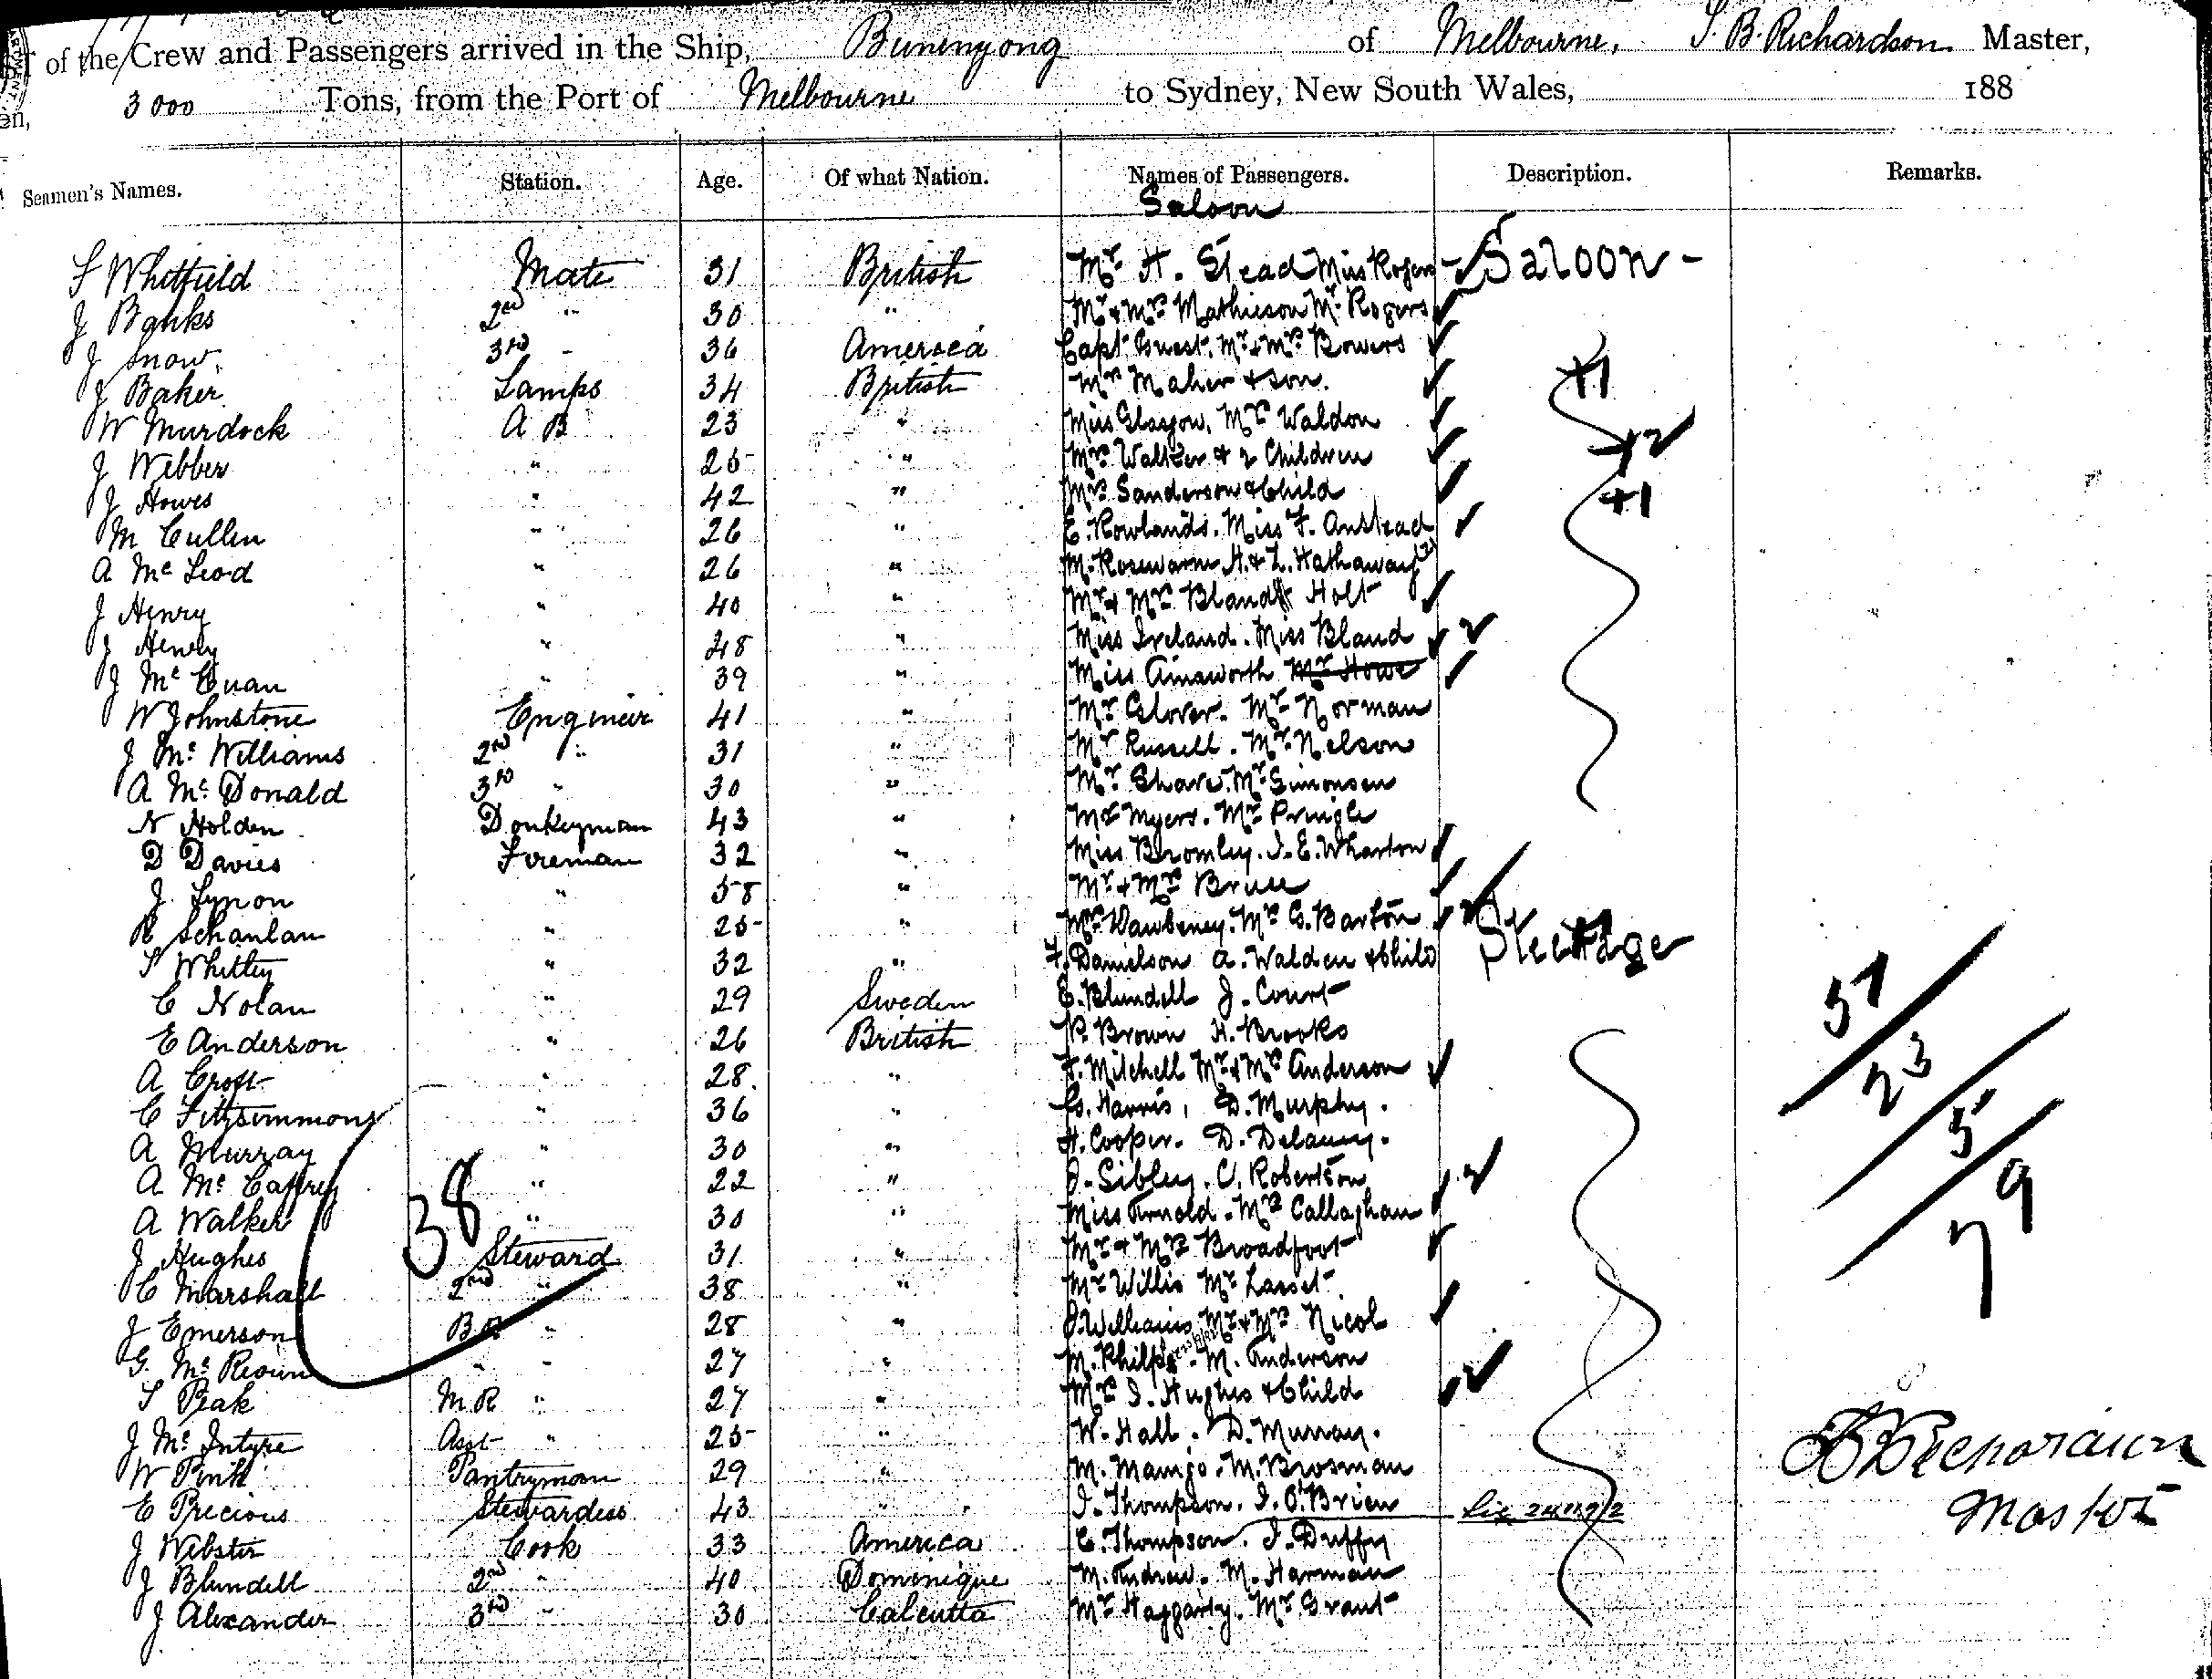 of the Crew and Passengers arrived in the Ship, Buninyong of Melbourne, S. B. Richardson Master,
3000 Tons, from the Port of Melbourne to Sydney, New South Wales, 188
Seamen's Names. Station. Age. Of what Nation. Names of Passengers. Description. Remarks.
Saloon
S Whitfield Mate 31 British Mr H. Stead Miss Rogers - Saloon -
J Banks 2nd " 30 " Mr & Mrs Mathieson Mr Rogers
J Snow 3rd " 36 America Capt Guest. Mr & Mrs Bowers
J Baker Lamps 34 British Mrs Maher & son. +1
W Murdock A B 23 " Miss Glasgow, Mrs Waldon
J Webber " 25 " Mrs Walter & 2 Children +2
J Howes " 42 " Mrs Sanderson & Child +1
M Cullen " 26 " E. Rowlands. Miss F. Anstead
A Mc Leod " 26 " M. Rosewarne H. & L. Hathaway (2)
J Henry " 40 " Mr & Mrs Bland Holt
J Henry " 48 " Miss Ireland. Miss Bland 2
J Mc Cuan " 39 " Miss Ainsworth Mr Howe
W Johnstone Engineer 41 " Mr Glover. Mr Norman
J Mc Williams 2nd " 31 " Mr Russell. Mr Nelson
A Mc Donald 3rd " 30 " Mr Shave. Mr Simonsen
N Holden Donkeyman 43 " Mr Myers. Mr Pringle
D Davies Fireman 32 " Miss Bromley. J. E. Wharton
J. Lynon " 58 " Mr & Mrs Bruce
R Schanlan " 25 " Mrs Dawbeney. Mrs G. Barton
S Whitley " 32 " F. Danielson A. Walden & Child Steerage
C Nolan " 29 Sweden E. Blundell J. Court 57
E Anderson " 26 British R. Brown H. Brooks
A Croft " 28 " F. Mitchell Mr & Mrs Anderson 23
C Fitzsimmons " 36 " G. Harris, D. Murphy. 5
A Murray " 30 " H. Cooper. D. Delaney.
A Mc Caffrey " 22 " J. Sibley. C. Robertson 2 79
A Walker 38 " 30 " Miss Arnold. Mrs Callaghan
J Hughes Steward 31 " Mr & Mrs Broadfoot
C Marshall 2nd " 38 " Mr Willis Mr Lasset
J Emerson B.R " 28 " J. Williams Mr & Mrs Nicol
G. Mc " " 27 " M. Philps. M. Anderson
S Peak M.R " 27 " Mrs J. Hughes & Child
J Mc Intyre Asst " 25 " W. Hall. D. Murray.
W Pink Pantryman 29 " M. M. Brosman
E Precious Stewardess 43 " J. Thompson. J. O'Brien
J Webster Cook 33 America C. Thompson. J. Duffy
J Blundell 2nd " 40 Dominique M. Andrew. M. Harman
J Alexander 3rd " 30 Calcutta Mr Haggarty. Mr Grant
S B Richardson
Master